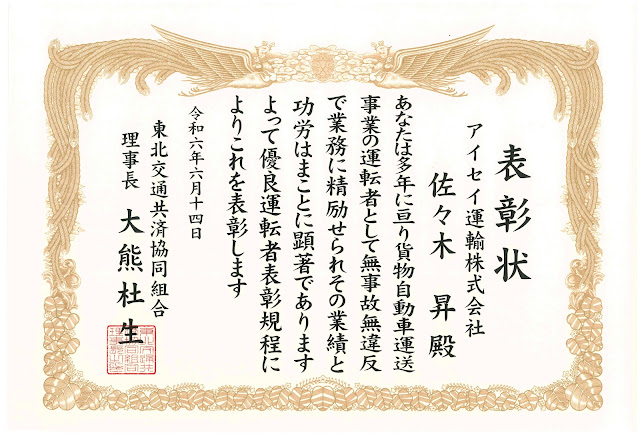 表彰状
アイセイ運輸株式会社
佐々木 昇 殿
あなたは多年に亘り貨物自動車運送
事業の運転者として無事故無違反
で業務に精励せられその業績と
功労はまことに顕著であります
よって優良運転者表彰規程に
よりこれを表彰します
令和六年六月十四日
東北交通共済協同組合
理事長 大熊杜生